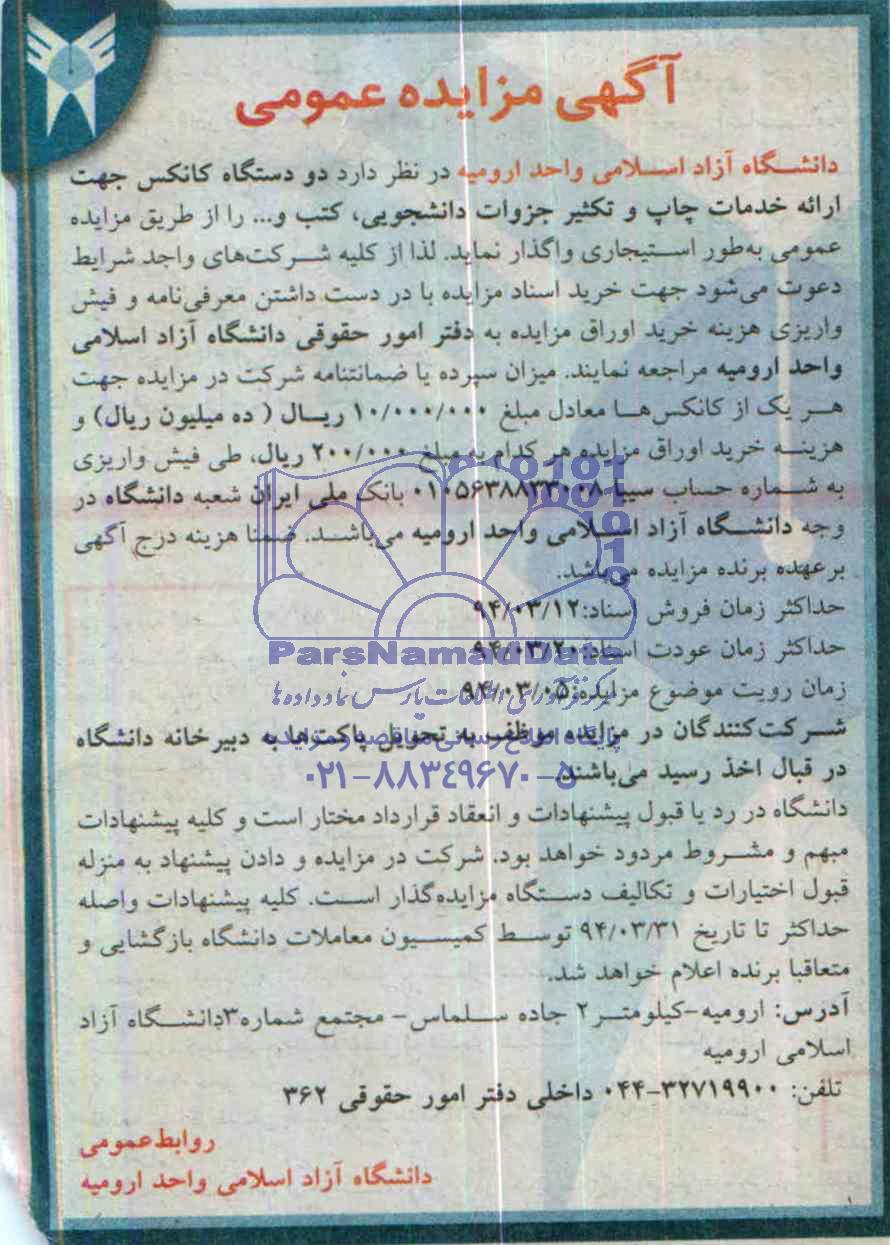 آگهی مزایده عمومی
دانشگاه آزاد اسلامی واحد ارومیه در نظر دارد دو دستگاه کانکس جهت
ارائه خدمات چاپ و تکثیر جزوات دانشجویی، کتب و... را از طریق مزایده
عمومی به‌طور استیجاری واگذار نماید. لذا از کلیه شرکت‌های واجد شرایط
دعوت می‌شود جهت خرید اسناد مزایده با در دست داشتن معرفی‌نامه و فیش
واریزی هزینه خرید اوراق مزایده به دفتر امور حقوقی دانشگاه آزاد اسلامی
واحد ارومیه مراجعه نمایند. میزان سپرده یا ضمانتنامه شرکت در مزایده جهت
هر یک از کانکس‌ها معادل مبلغ ۱۰/۰۰۰/۰۰۰ ریال ( ده میلیون ریال) و
هزینه خرید اوراق مزایده هر کدام به مبلغ ۲۰۰/۰۰۰ ریال، طی فیش واریزی
به شماره حساب سیبا ۰۱۰۵۶۳۸۸۳۳۰۰۸ بانک ملی ایران شعبه دانشگاه در
وجه دانشگاه آزاد اسلامی واحد ارومیه می‌باشد. ضمنا هزینه درج آگهی
برعهده برنده مزایده می‌باشد.
حداکثر زمان فروش اسناد:۹۴/۰۳/۱۲
حداکثر زمان عودت اسناد:۹۴/۰۳/۲۰
ParsNamadData
زمان رویت موضوع مزایده:۹۴/۰۳/۰۵
مرکز فرآوری اطلاعات پارس نماد داده ها
شرکت‌کنندگان در مزایده موظف به تحویل پاکت‌ها به دبیرخانه دانشگاه
پایگاه اطلاع رسانی مناقصه و مزایده
در قبال اخذ رسید می‌باشند.
۰۲۱-۸۸۳۴۹۶۷۰-۵
دانشگاه در رد یا قبول پیشنهادات و انعقاد قرارداد مختار است و کلیه پیشنهادات
مبهم و مشروط مردود خواهد بود. شرکت در مزایده و دادن پیشنهاد به منزله
قبول اختیارات و تکالیف دستگاه مزایده‌گذار است. کلیه پیشنهادات واصله
حداکثر تا تاریخ ۹۴/۰۳/۳۱ توسط کمیسیون معاملات دانشگاه بازگشایی و
متعاقبا برنده اعلام خواهد شد.
آدرس: ارومیه-کیلومتر۲ جاده سلماس- مجتمع شماره۳دانشگاه آزاد
اسلامی ارومیه
تلفن: ۳۲۷۱۹۹۰۰-۰۴۴ داخلی دفتر امور حقوقی ۳۶۲
روابط‌عمومی
دانشگاه آزاد اسلامی واحد ارومیه